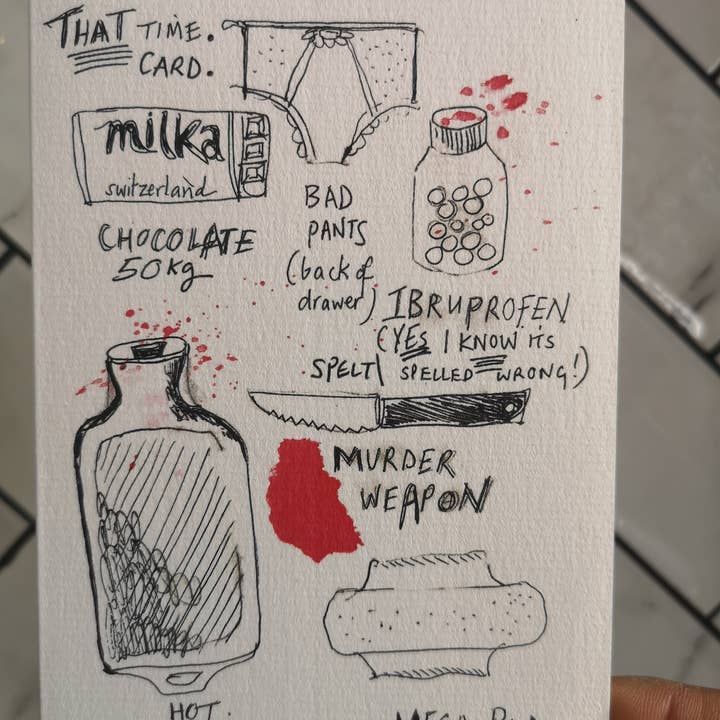 THAT TIME.
CARD.
milka
switzerland
CHOCOLATE
50kg
BAD
PANTS
(back of
drawer)
IBRUPROFEN
(YES I KNOW it's
SPELT\ SPELLED WRONG!)
MURDER
WEAPON
HOT.
MEGA